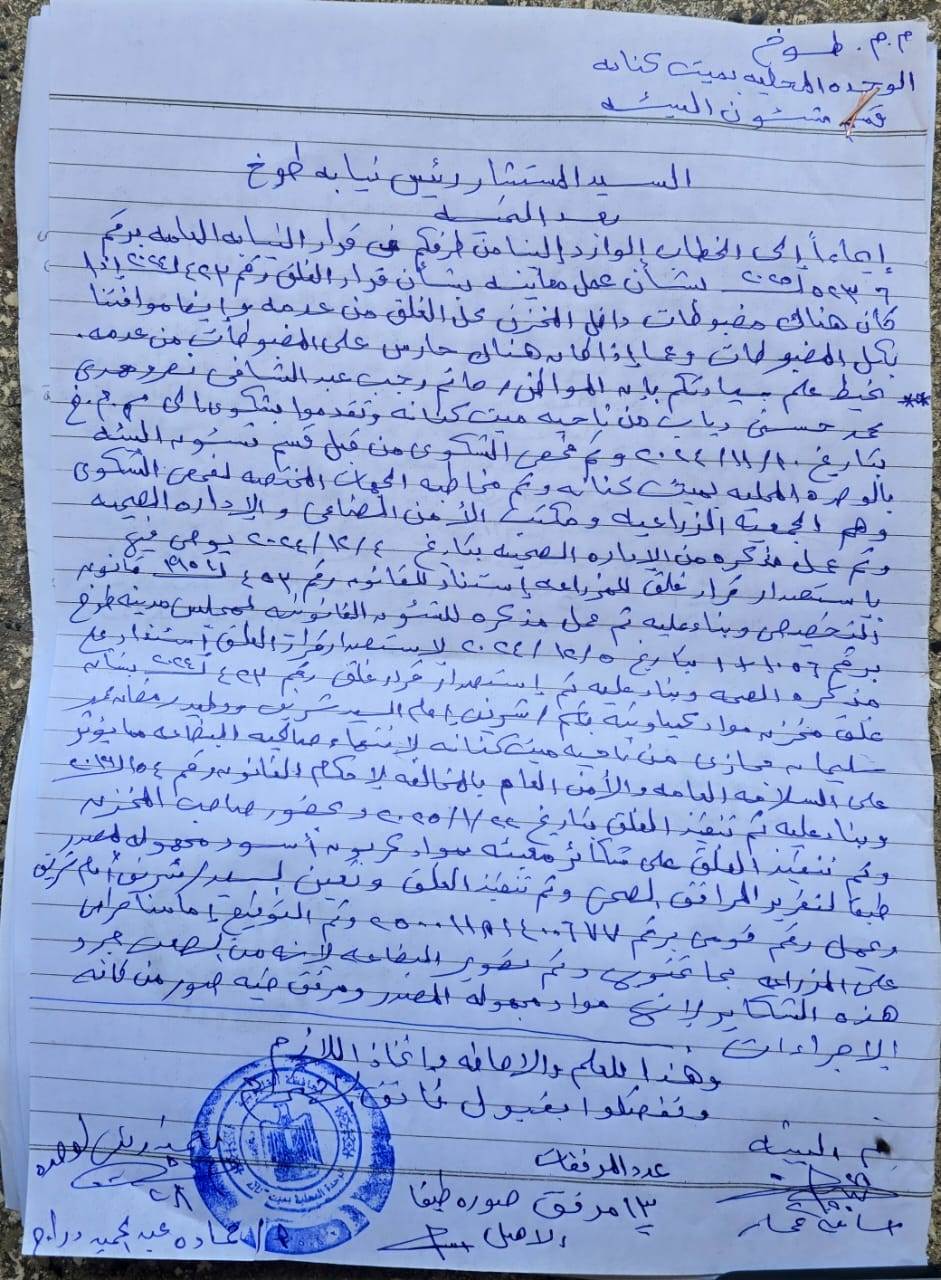 م.م. طوخ
الوحده المحليه بميت كنانه
قسم شئون البيئه
السيد المستشار رئيس نيابه طوخ
بعد التحيه
إيماءاً إلى الخطاب الوارد إلينا من طرفكم فى قرار النيابه العامه برقم
٥٢٣٠٦ لسنة ٢٠٢٥ بشأن عمل معاينه بشأن قرار الغلق رقم ٤٢٣ لسنة ٢٠٢٤ إذا
كان هناك مضبوطات داخل المخزن محل الغلق من عدمه وإيضا موافتنا
بكل المضبوطات وعما إذا كان هناك حارس على المضبوطات من عدمه.
** نحيط علم سيادتكم بإنه المواطن / حاتم رجب عبد الشافى نصر و هدى
محمد حسنى دياب من ناحيه ميت كنانه وتقدموا بشكوى إلى م.م.
بتاريخ ٢٠٢٤/١١/١٠ وتم فحص الشكوى من قبل قسم شئون البيئه
بالوحده المحليه بميت كنانه وتم مخاطبه الجهات المختصه لفحص الشكوى
وهم الجمعية الزراعيه ومكتب الأمن الصناعى والإداره الصحيه
وتم عمل مذكره من الإداره الصحيه بتاريخ ٢٠٢٤/١٢/٤ يوصى فيها
باستصدار قرار غلق للمزرعه إستناداً للقانون رقم ٤٥٣ لسنة قانون
التخصيص وبناء عليه تم عمل مذكره للشئون القانونيه لمجلس مدينه طوخ
برقم ١٠٥٦ بتاريخ ٢٠٢٤/١٢/٥ لاستصدار قرار الغلق إستناداً على
مذكره الصحه وبناء عليه تم إستصدار قرار غلق رقم ٤٢٣ لسنة ٢٠٢٤ بشأن
غلق مخزن مواد كيماوية بإسم / شريف إمام السيد شريف ووليد رمضان
سليمان حجازى من ناحيه ميت كنانه لإنتهاء صلاحيه البضاعه مما يؤثر
على السلامه العامه والأمن العام بالمخالفه لاحكام القانون رقم ١٥٤ لسنة ٢٠١٩
وبناء عليه تم تنفيذ الغلق بتاريخ ٢٠٢٥/١/٢٢ وبحضور صاحب المخزن
وتم تنفيذ الغلق على شكائر معبئه بمواد كربون أسود مجهوله المصدر
طبقا لتقرير المرافق الصحى وتم تنفيذ الغلق وتعين السيد / شريف إمام شريف
ويحمل رقم قومى برقم وتم التوقيع إمامنا حراسى
على المزرعه بما تحتوى وتم تصوير البضاعه لإنه من الصعب جرد
هذه الشكاير لإنها مواد مجهوله المصدر ومرفق طيه صور من كافه
الإجراءات
وهذا للعلم والإحاطه وإتخاذ اللازم
وتفضلوا بقبول فائق
ق. البيئه
عدد المرفقات
١٣ مرفق صوره طبقا
للاصل
رئيس الوحده
عبد الحميد دراج